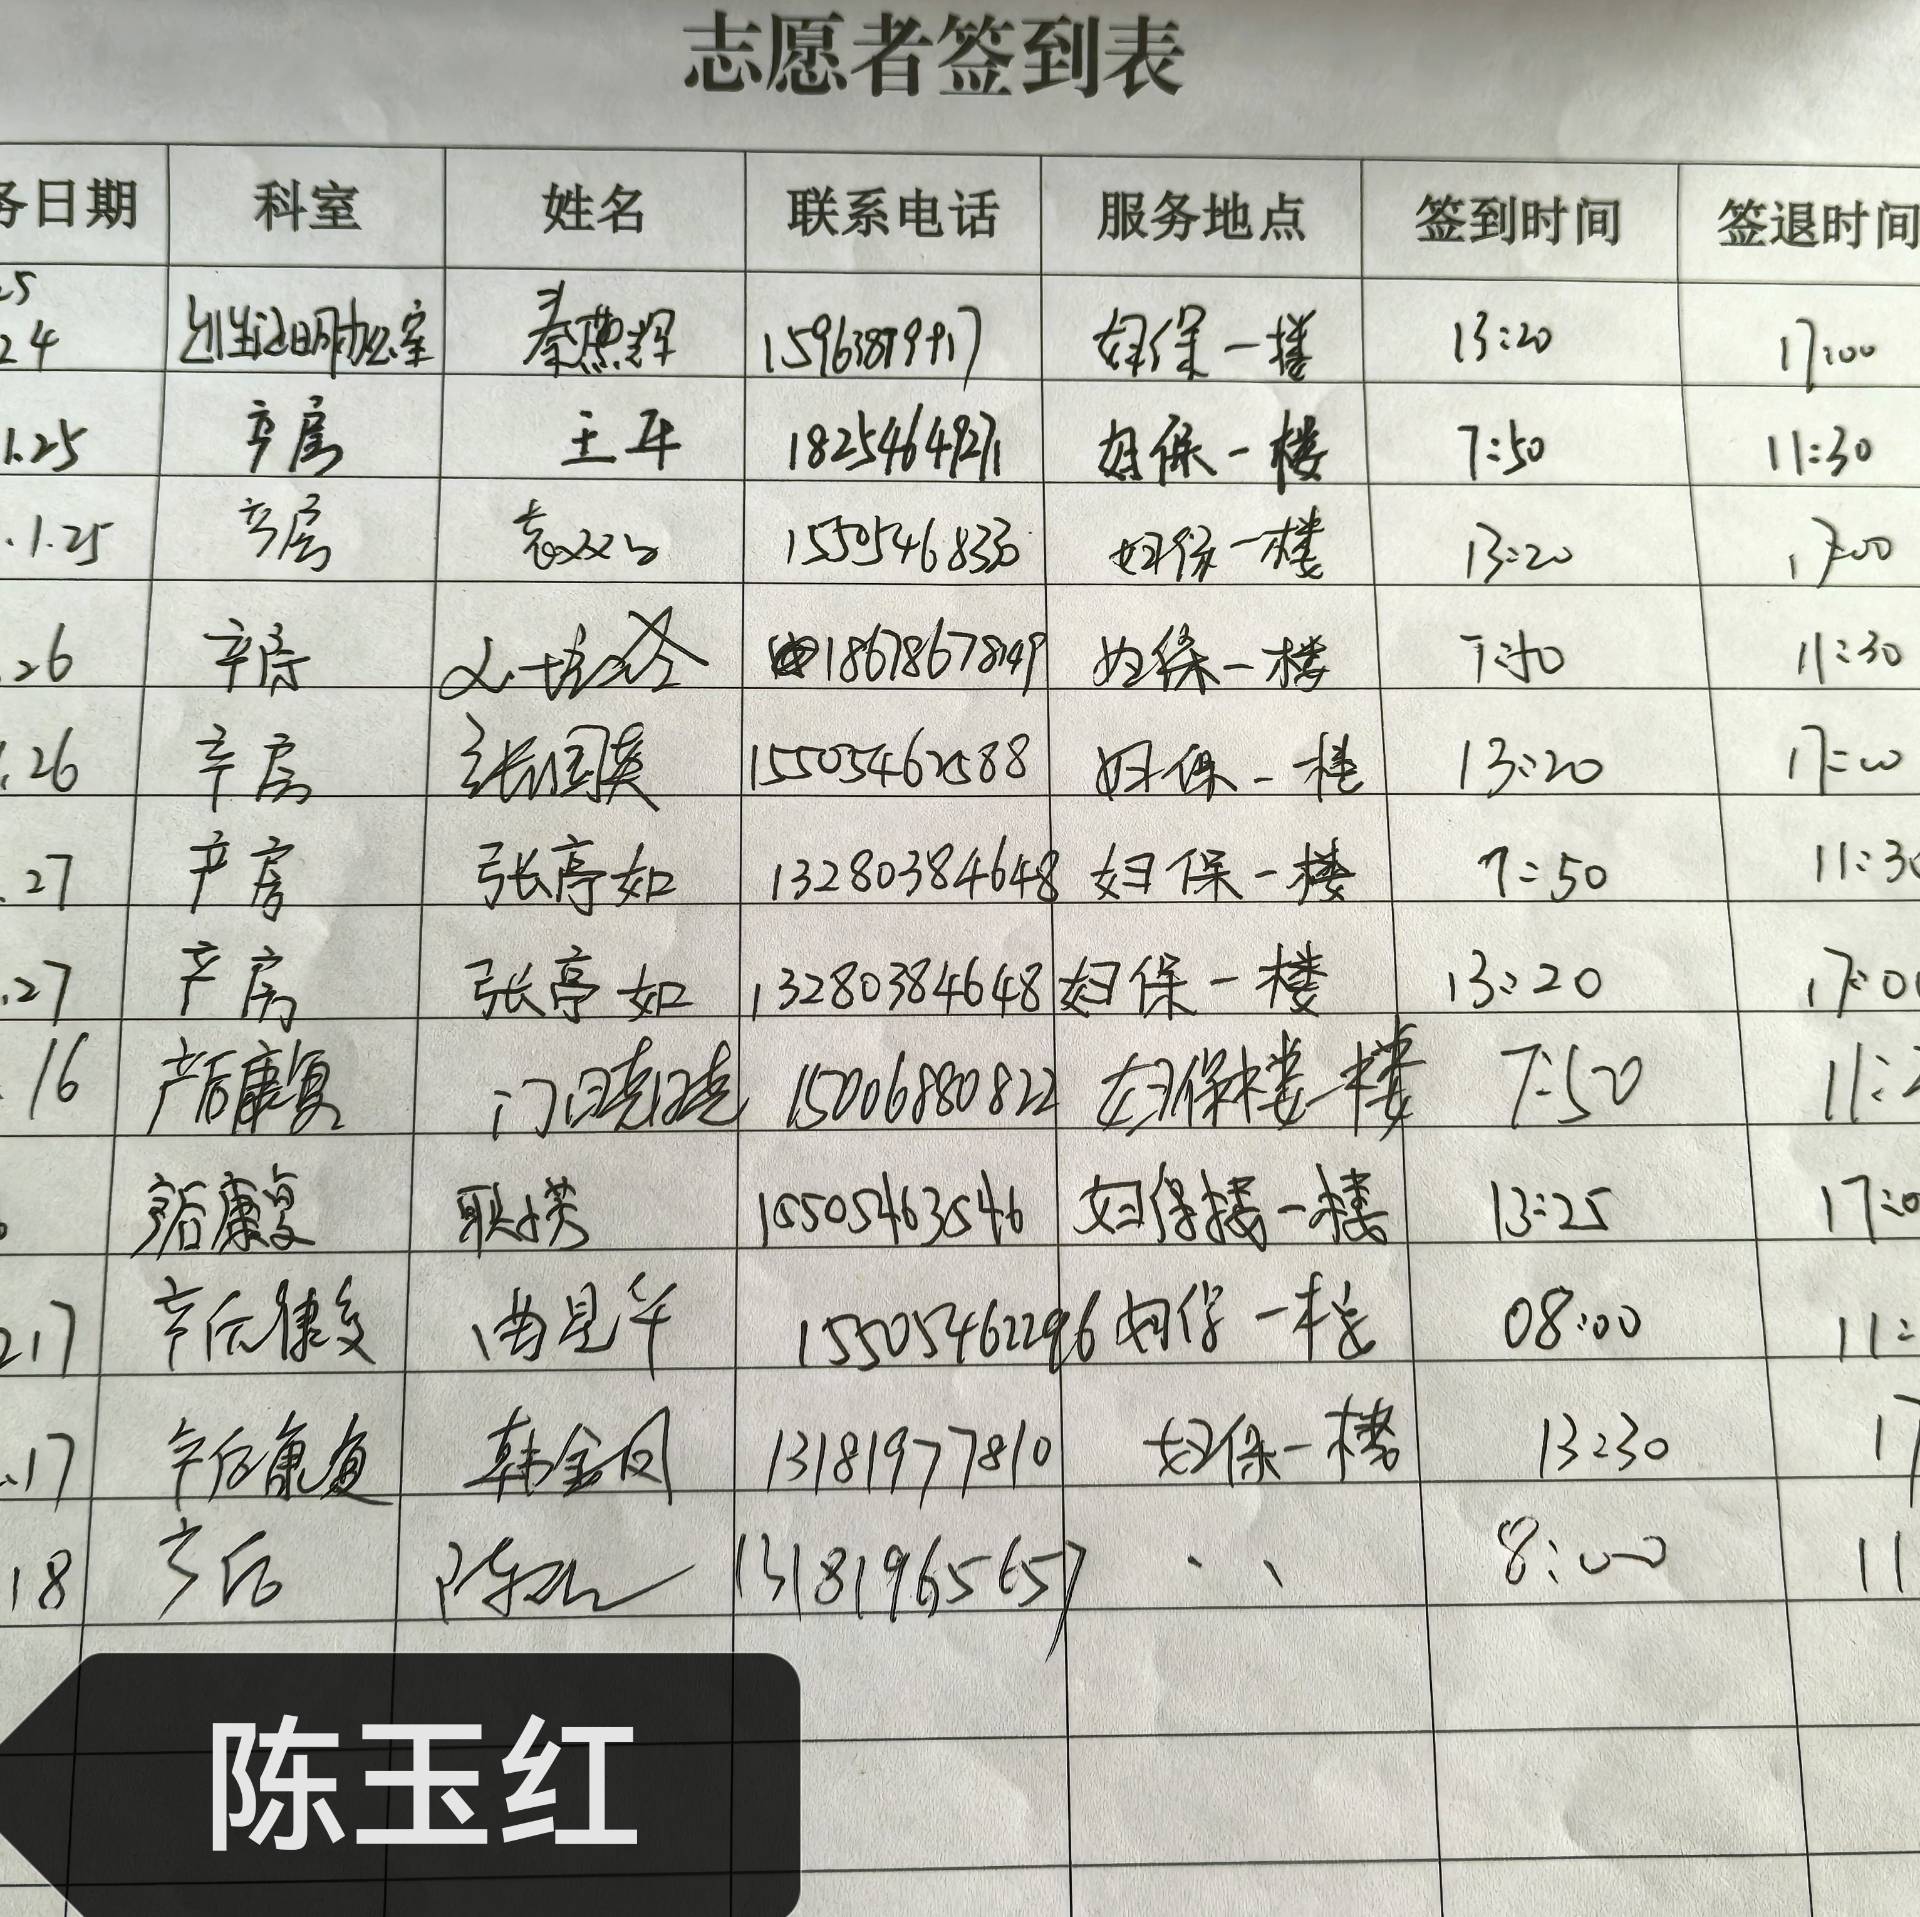 志愿者签到表
务日期 科室 姓名 联系电话 服务地点 签到时间 签退时间
24 出生证明办公室 秦燕辉 15963879917 妇保一楼 13:20 17:00
1.25 产房 王 18254649271 妇保一楼 7:50 11:30
.1.25 产房 袁双双 1550546833 妇保一楼 13:20 17:00
.26 产房 18678678149 妇保一楼 7:50 11:30
.26 产房 张国英 15505462588 妇保一楼 13:20 17:00
.27 产房 张亭如 13280384648 妇保一楼 7:50 11:30
.27 产房 张亭如 13280384648 妇保一楼 13:20 17:00
.16 产后康复 门晓晓 15006880822 妇保楼一楼 7:50 11:
产后康复 耿芳 15505463546 妇保楼一楼 13:25 17:0
2.17 产后康复 曲见华 15505462296 妇保一楼 08:00 11:
.17 产后康复 韩金凤 13181977810 妇保一楼 13:30 17
18 产后 陈玉红 13181965657 、、 8:00 11
陈玉红